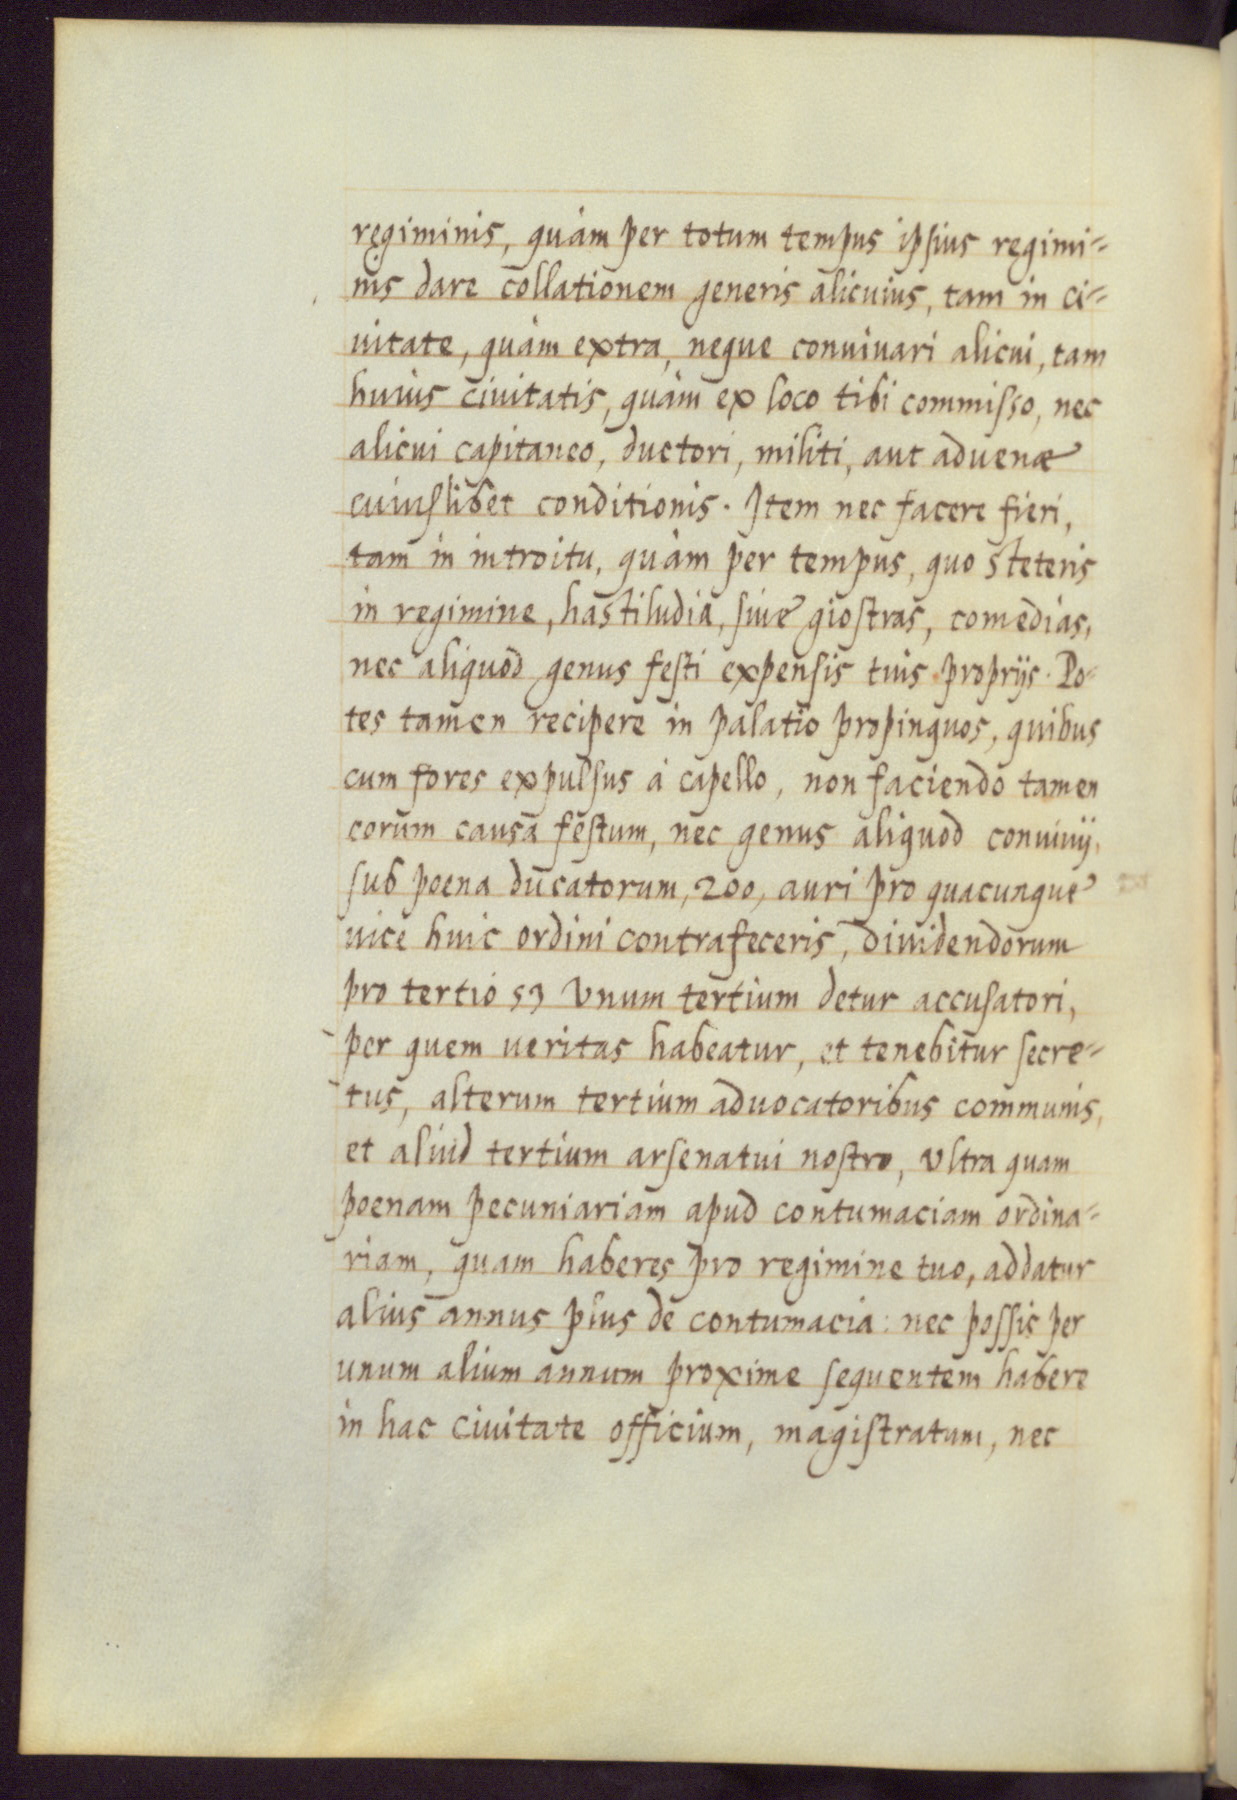 regiminis, quàm per totum tempus ipsius regimi-
nis dare collationem generis alicuius, tam in ci-
uitate, quàm extra, neque conuiuari alicui, tam
huius ciuitatis, quàm ex loco tibi commisso, nec
alicui capitaneo, ductori, militi, aut aduenæ
cuiuslibet conditionis. Item nec facere fieri,
tam in introitu, quàm per tempus, quo steteris
in regimine, hastiludia, siue giostras, comedias,
nec aliquod genus festi expensis tuis proprijs. Po-
tes tamen recipere in palatio propinquos, quibus
cum fores expulsus à capello, non faciendo tamen
eorum causa festum, nec genus aliquod conuiuij,
sub poena ducatorum, 200, auri pro quacunque
uice huic ordini contrafeceris, diuidendorum
pro tertio sȝ Vnum tertium detur accusatori,
per quem ueritas habeatur, et tenebitur secre-
tus, alterum tertium aduocatoribus communis,
et aliud tertium arsenatui nostro, Vltra quam
poenam pecuniariam apud contumaciam ordina-
riam, quam haberes pro regimine tuo, addatur
alius annus plus de contumacia: nec possis per
unum alium annum proxime sequentem habere
in hac ciuitate officium, magistratum, nec